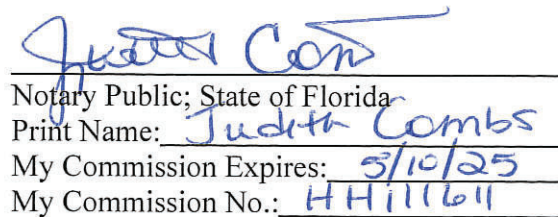 Judith Com
Notary Public; State of Florida
Print Name: Judith Combs
My Commission Expires: 5/10/25
My Commission No.: HH111611